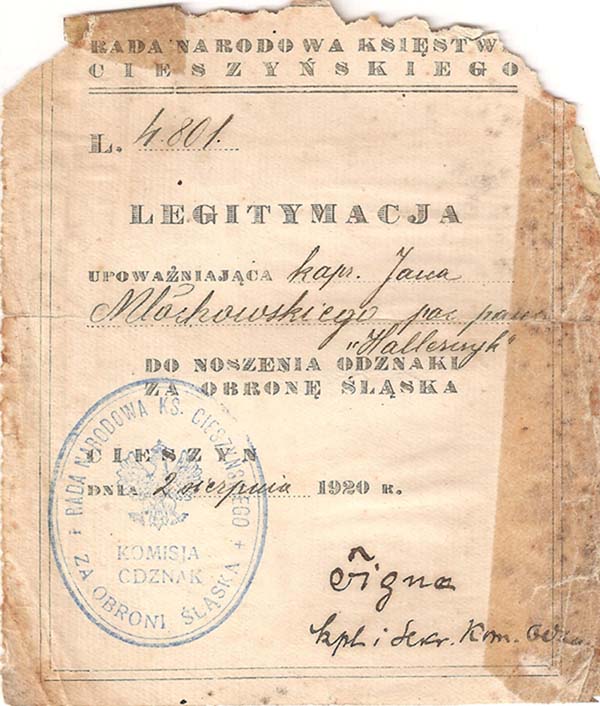 RADA NARODOWA KSIĘSTW
CIESZYŃSKIEGO
L. 4.801.
LEGITYMACJA
UPOWAŻNIAJĄCA kapr. Jana
Młóchowskiego poc. panc.
"Hallerczyk"
DO NOSZENIA ODZNAKI
ZA OBRONĘ ŚLĄSKA
CIESZYN
DNIA 2 sierpnia 1920 R.
RADA NARODOWA KS. CIESZYŃSKIEGO
KOMISJA
ODZNAK
ZA OBRONI ŚLĄSKA
kpt. i Sekr. Kom.